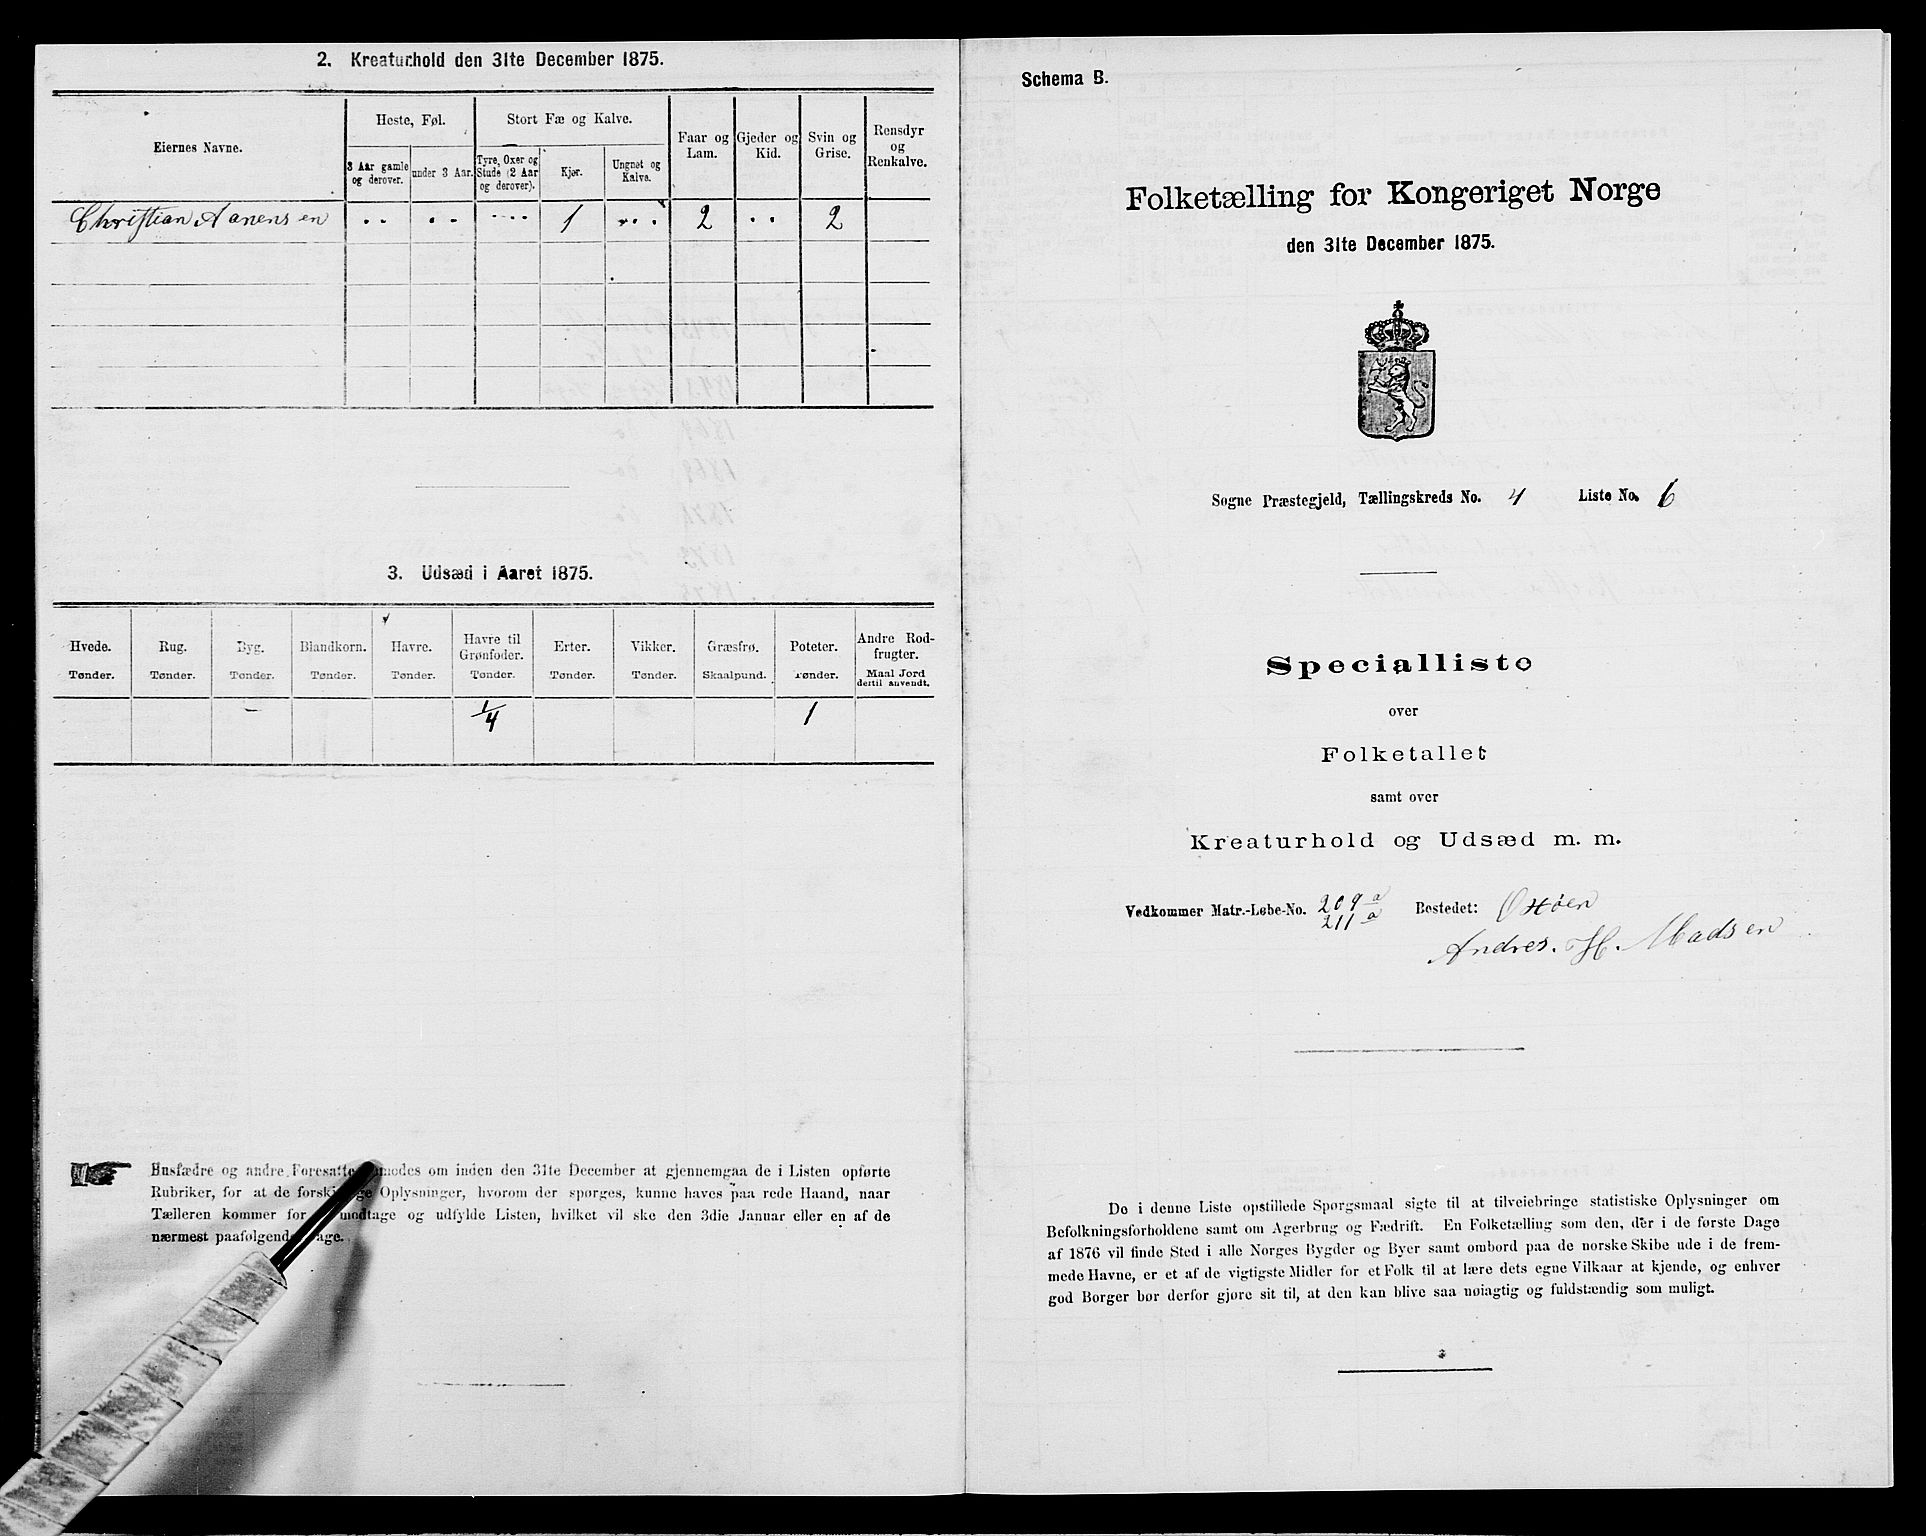 2. Kreaturhold den 31te December 1875.
Eiernes Navne.
Heste, Føl.
Stort Fæ og Kalve.
Faar og Lam.
Gjeder og Kid.
Svin og Grise.
Rensdyr og Renkalve.
3 Aar gamle og derover.
under 3 Aar.
Tyre, Oxer og Stude (2 Aar og derover).
Kjør.
Ungnøt og Kalve.
Christian Aanensen 1 2 2
3. Udsæd i Aaret 1875.
Hvede. Rug. Byg. Blandkorn. Havre. Havre til Grønfoder. Erter. Vikker. Græsfrø. Poteter. Andre Rodfrugter.
Tønder. Tønder. Tønder. Tønder. Tønder. Tønder. Tønder. Tønder. Skaalpund. Tønder. Maal Jord dertil anvendt.
1/4 1
Husfædre og andre Foresatte modes om inden den 31te December at gjennemgaa de i Listen opførte
Rubriker, for at de Oplysninger, hvorom der spørges, kunne haves paa rede Haand, naar
Tælleren kommer for modtage og udfylde Listen, hvilket vil ske den 3die Januar eller en af de
nærmest paafølgende
Schema B.
Folketælling for Kongeriget Norge
den 31te December 1875.
Sogne Præstegjeld, Tællingskreds No. 4 Liste No. 6
Specialliste
over
Folketallet
samt over
Kreaturhold og Udsæd m. m.
Vedkommer Matr.-Løbe-No. 209 a Bostedet:
211 a
Andres. H. Madsen
De i denne Liste opstillede Spørgsmaal sigte til at tilveiebringe statistiske Oplysninger om
Befolkningsforholdene samt om Agerbrug og Fædrift. En Folketælling som den, der i de første Dage
af 1876 vil finde Sted i alle Norges Bygder og Byer samt ombord paa de norske Skibe ude i de frem-
mede Havne, er et af de vigtigste Midler for et Folk til at lære dets egne Vilkaar at kjende, og enhver
god Borger bør derfor gjøre sit til, at den kan blive saa nøiagtig og fuldstændig som muligt.